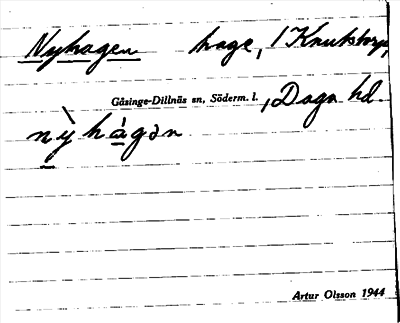 Nyhagen hage, 1 Knutstorp,
Gåsinge-Dillnäs sn, Söderm. l., Daga hd.
nỳhàgən
Artur Olsson 1944